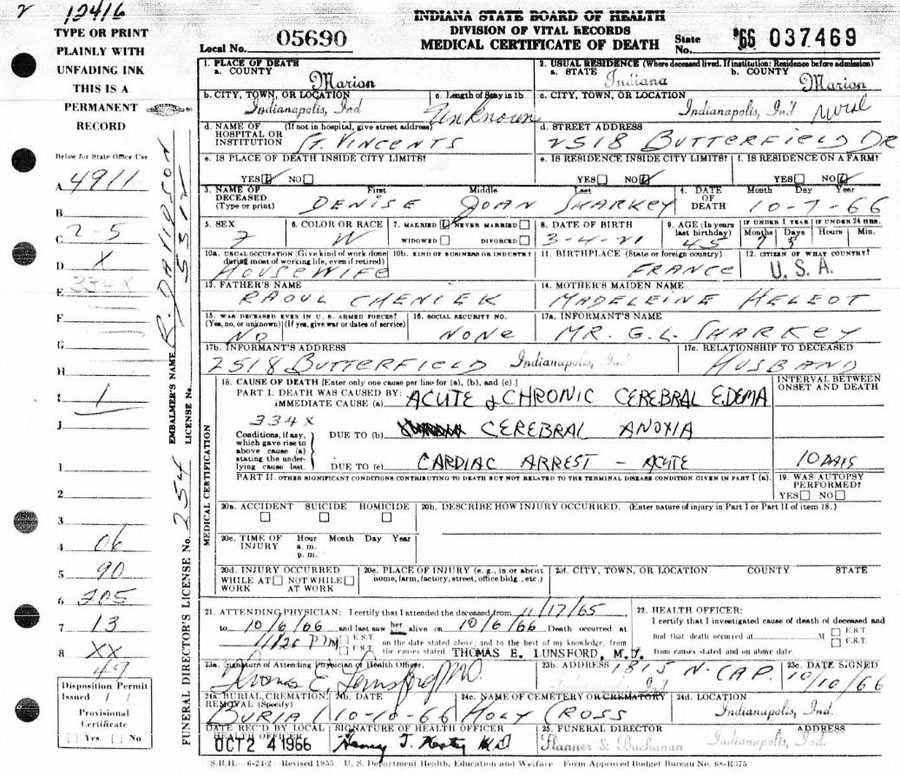 2 12416
TYPE OR PRINT
PLAINLY WITH
UNFADING INK
THIS IS A
PERMANENT
RECORD
Below for State Office Use
A 4911
B
C 2-5
D X
E 334X
F
G
H
I 1
J
1
2
3
4 06
5 90
6 205
7 13
8 XX
49
Disposition Permit
Issued
Provisional
Certificate
Yes No
EMBALMER'S NAME R. DAVIDSON LICENSE No. 5512
FUNERAL DIRECTOR'S LICENSE No. 254
INDIANA STATE BOARD OF HEALTH
DIVISION OF VITAL RECORDS
MEDICAL CERTIFICATE OF DEATH
Local No. 05690
State No. '66 037469
1. PLACE OF DEATH
a. COUNTY Marion
2. USUAL RESIDENCE (Where deceased lived. If institution: Residence before admission)
a. STATE Indiana b. COUNTY Marion
b. CITY, TOWN, OR LOCATION Indianapolis, Ind
c. Length of Stay in 1b Unknown
c. CITY, TOWN, OR LOCATION Indianapolis, Ind
d. NAME OF HOSPITAL OR INSTITUTION (If not in hospital, give street address) ST. VINCENTS
d. STREET ADDRESS 2518 BUTTERFIELD DR
e. IS PLACE OF DEATH INSIDE CITY LIMITS? YES NO
e. IS RESIDENCE INSIDE CITY LIMITS? YES NO
f. IS RESIDENCE ON A FARM? YES NO
3. NAME OF DECEASED (Type or print) First Middle Last
DENISE JOAN SHARKEY
4. DATE OF DEATH Month Day Year
10-7-66
5. SEX F
6. COLOR OR RACE W
7. MARRIED NEVER MARRIED
WIDOWED DIVORCED
8. DATE OF BIRTH 3-4-21
9. AGE (In years last birthday) 45
IF UNDER 1 YEAR Months Days 7 3
IF UNDER 24 HRS. Hours Min.
10a. USUAL OCCUPATION (Give kind of work done during most of working life, even if retired) HOUSEWIFE
10b. KIND OF BUSINESS OR INDUSTRY
11. BIRTHPLACE (State or foreign country) FRANCE
12. CITIZEN OF WHAT COUNTRY? U.S.A.
13. FATHER'S NAME RAOUL CHENIEK
14. MOTHER'S MAIDEN NAME MADELEINE HELEOT
15. WAS DECEASED EVER IN U. S. ARMED FORCES? (Yes, no, or unknown) (If yes, give war or dates of service) NO
16. SOCIAL SECURITY NO. NONE
17a. INFORMANT'S NAME MR. G.L. SHARKEY
17b. INFORMANT'S ADDRESS 2518 BUTTERFIELD Indianapolis, Ind.
17c. RELATIONSHIP TO DECEASED HUSBAND
MEDICAL CERTIFICATION
18. CAUSE OF DEATH [Enter only one cause per line for (a), (b), and (c).]
INTERVAL BETWEEN ONSET AND DEATH
PART I. DEATH WAS CAUSED BY:
IMMEDIATE CAUSE (a) ACUTE & CHRONIC CEREBRAL EDEMA
334X
Conditions, if any, which gave rise to above cause (a) stating the underlying cause last.
DUE TO (b) CEREBRAL ANOXIA
DUE TO (c) CARDIAC ARREST - ACUTE 10 DAYS
PART II. OTHER SIGNIFICANT CONDITIONS CONTRIBUTING TO DEATH BUT NOT RELATED TO THE TERMINAL DISEASE CONDITION GIVEN IN PART I (a).
19. WAS AUTOPSY PERFORMED? YES NO
20a. ACCIDENT SUICIDE HOMICIDE
20b. DESCRIBE HOW INJURY OCCURRED. (Enter nature of injury in Part I or Part II of item 18.)
20c. TIME OF INJURY Hour a.m. p.m. Month Day Year
20d. INJURY OCCURRED WHILE AT WORK NOT WHILE AT WORK
20e. PLACE OF INJURY (e.g., in or about home, farm, factory, street, office bldg., etc.)
20f. CITY, TOWN, OR LOCATION COUNTY STATE
21. ATTENDING PHYSICIAN: I certify that I attended the deceased from 11/17/65
to 10/6/66 and last saw her alive on 10/6/66 Death occurred at
11:20 P M EST CDT on the date stated above; and to the best of my knowledge, from the causes stated. THOMAS E. LUNSFORD, M.D.
22. HEALTH OFFICER:
I certify that I investigated cause of death of deceased and
find that death occurred at M EST CKT
from causes and on above date.
23a. Signature of Attending Physician or Health Officer. Thomas E Lunsford MD
23b. ADDRESS 1815 N. CAP. Indianapolis, Ind
23c. DATE SIGNED 10/10/66
24a. BURIAL, CREMATION, REMOVAL (Specify) BURIAL
24b. DATE 10-10-66
24c. NAME OF CEMETERY OR CREMATORY HOLY CROSS
24d. LOCATION Indianapolis, Ind.
DATE REC'D BY LOCAL HEALTH OFFICER OCT 24 1966
SIGNATURE OF HEALTH OFFICER
25. FUNERAL DIRECTOR Flanner & Buchanan
ADDRESS Indianapolis, Ind.
S.B.H.—6-24-2 Revised 1955 U. S. Department Health, Education and Welfare Form Approved Budget Bureau No. 68-R375